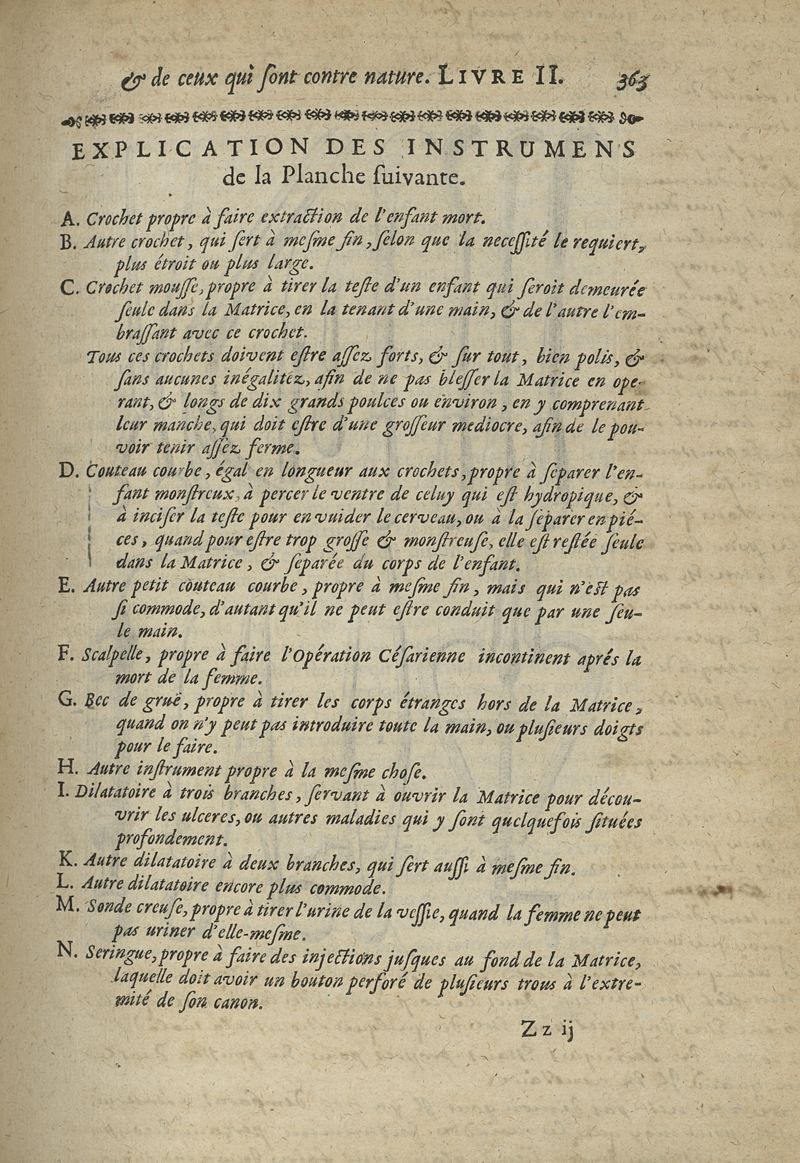 & de ceux qui ſont contre nature. LIVRE II. 363
EXPLICATION DES INSTRUMENS
de la Planche ſuivante.
A. Crochet propre à faire extraction de l'enfant mort.
B. Autre crochet, qui ſert à meſme fin, ſelon que la neceſſité le requiert,
plus étroit ou plus large.
C. Crochet mouſſe, propre à tirer la teſte d'un enfant qui ſeroit demeurée
ſeule dans la Matrice, en la tenant d'une main, & de l'autre l'em-
braſſant avec ce crochet.
Tous ces crochets doivent eſtre aſſez forts, & ſur tout, bien polis, &
ſans aucunes inégalitez, afin de ne pas bleſſer la Matrice en ope-
rant, & longs de dix grands poulces ou environ, en y comprenant
leur manche, qui doit eſtre d'une groſſeur mediocre, afin de le pou-
voir tenir aſſez ferme.
D. Couteau courbe, égal en longueur aux crochets, propre à ſeparer l'en-
fant monſtreux, à percer le ventre de celuy qui eſt hydropique, &
à inciſer la teſte pour en vuider le cerveau, ou à la ſeparer en pié-
ces, quand pour eſtre trop groſſe & monſtreuſe, elle eſt reſtée ſeule
dans la Matrice, & ſeparée du corps de l'enfant.
E. Autre petit couteau courbe, propre à meſme fin, mais qui n'eſt pas
ſi commode, d'autant qu'il ne peut eſtre conduit que par une ſeu-
le main.
F. Scalpelle, propre à faire l'Opération Céſarienne incontinent aprés la
mort de la femme.
G. Bec de gruë, propre à tirer les corps étranges hors de la Matrice,
quand on n'y peut pas introduire toute la main, ou pluſieurs doigts
pour le faire.
H. Autre inſtrument propre à la meſme choſe.
I. Dilatatoire à trois branches, ſervant à ouvrir la Matrice pour décou-
vrir les ulceres, ou autres maladies qui y ſont quelquefois ſituées
profondement.
K. Autre dilatatoire à deux branches, qui ſert auſſi à meſme fin.
L. Autre dilatatoire encore plus commode.
M. Sonde creuſe, propre à tirer l'urine de la veſſie, quand la femme ne peut
pas uriner d'elle-meſme.
N. Seringue, propre à faire des injections juſques au fond de la Matrice,
laquelle doit avoir un bouton perforé de pluſieurs trous à l'extre-
mité de ſon canon.
Zz ij